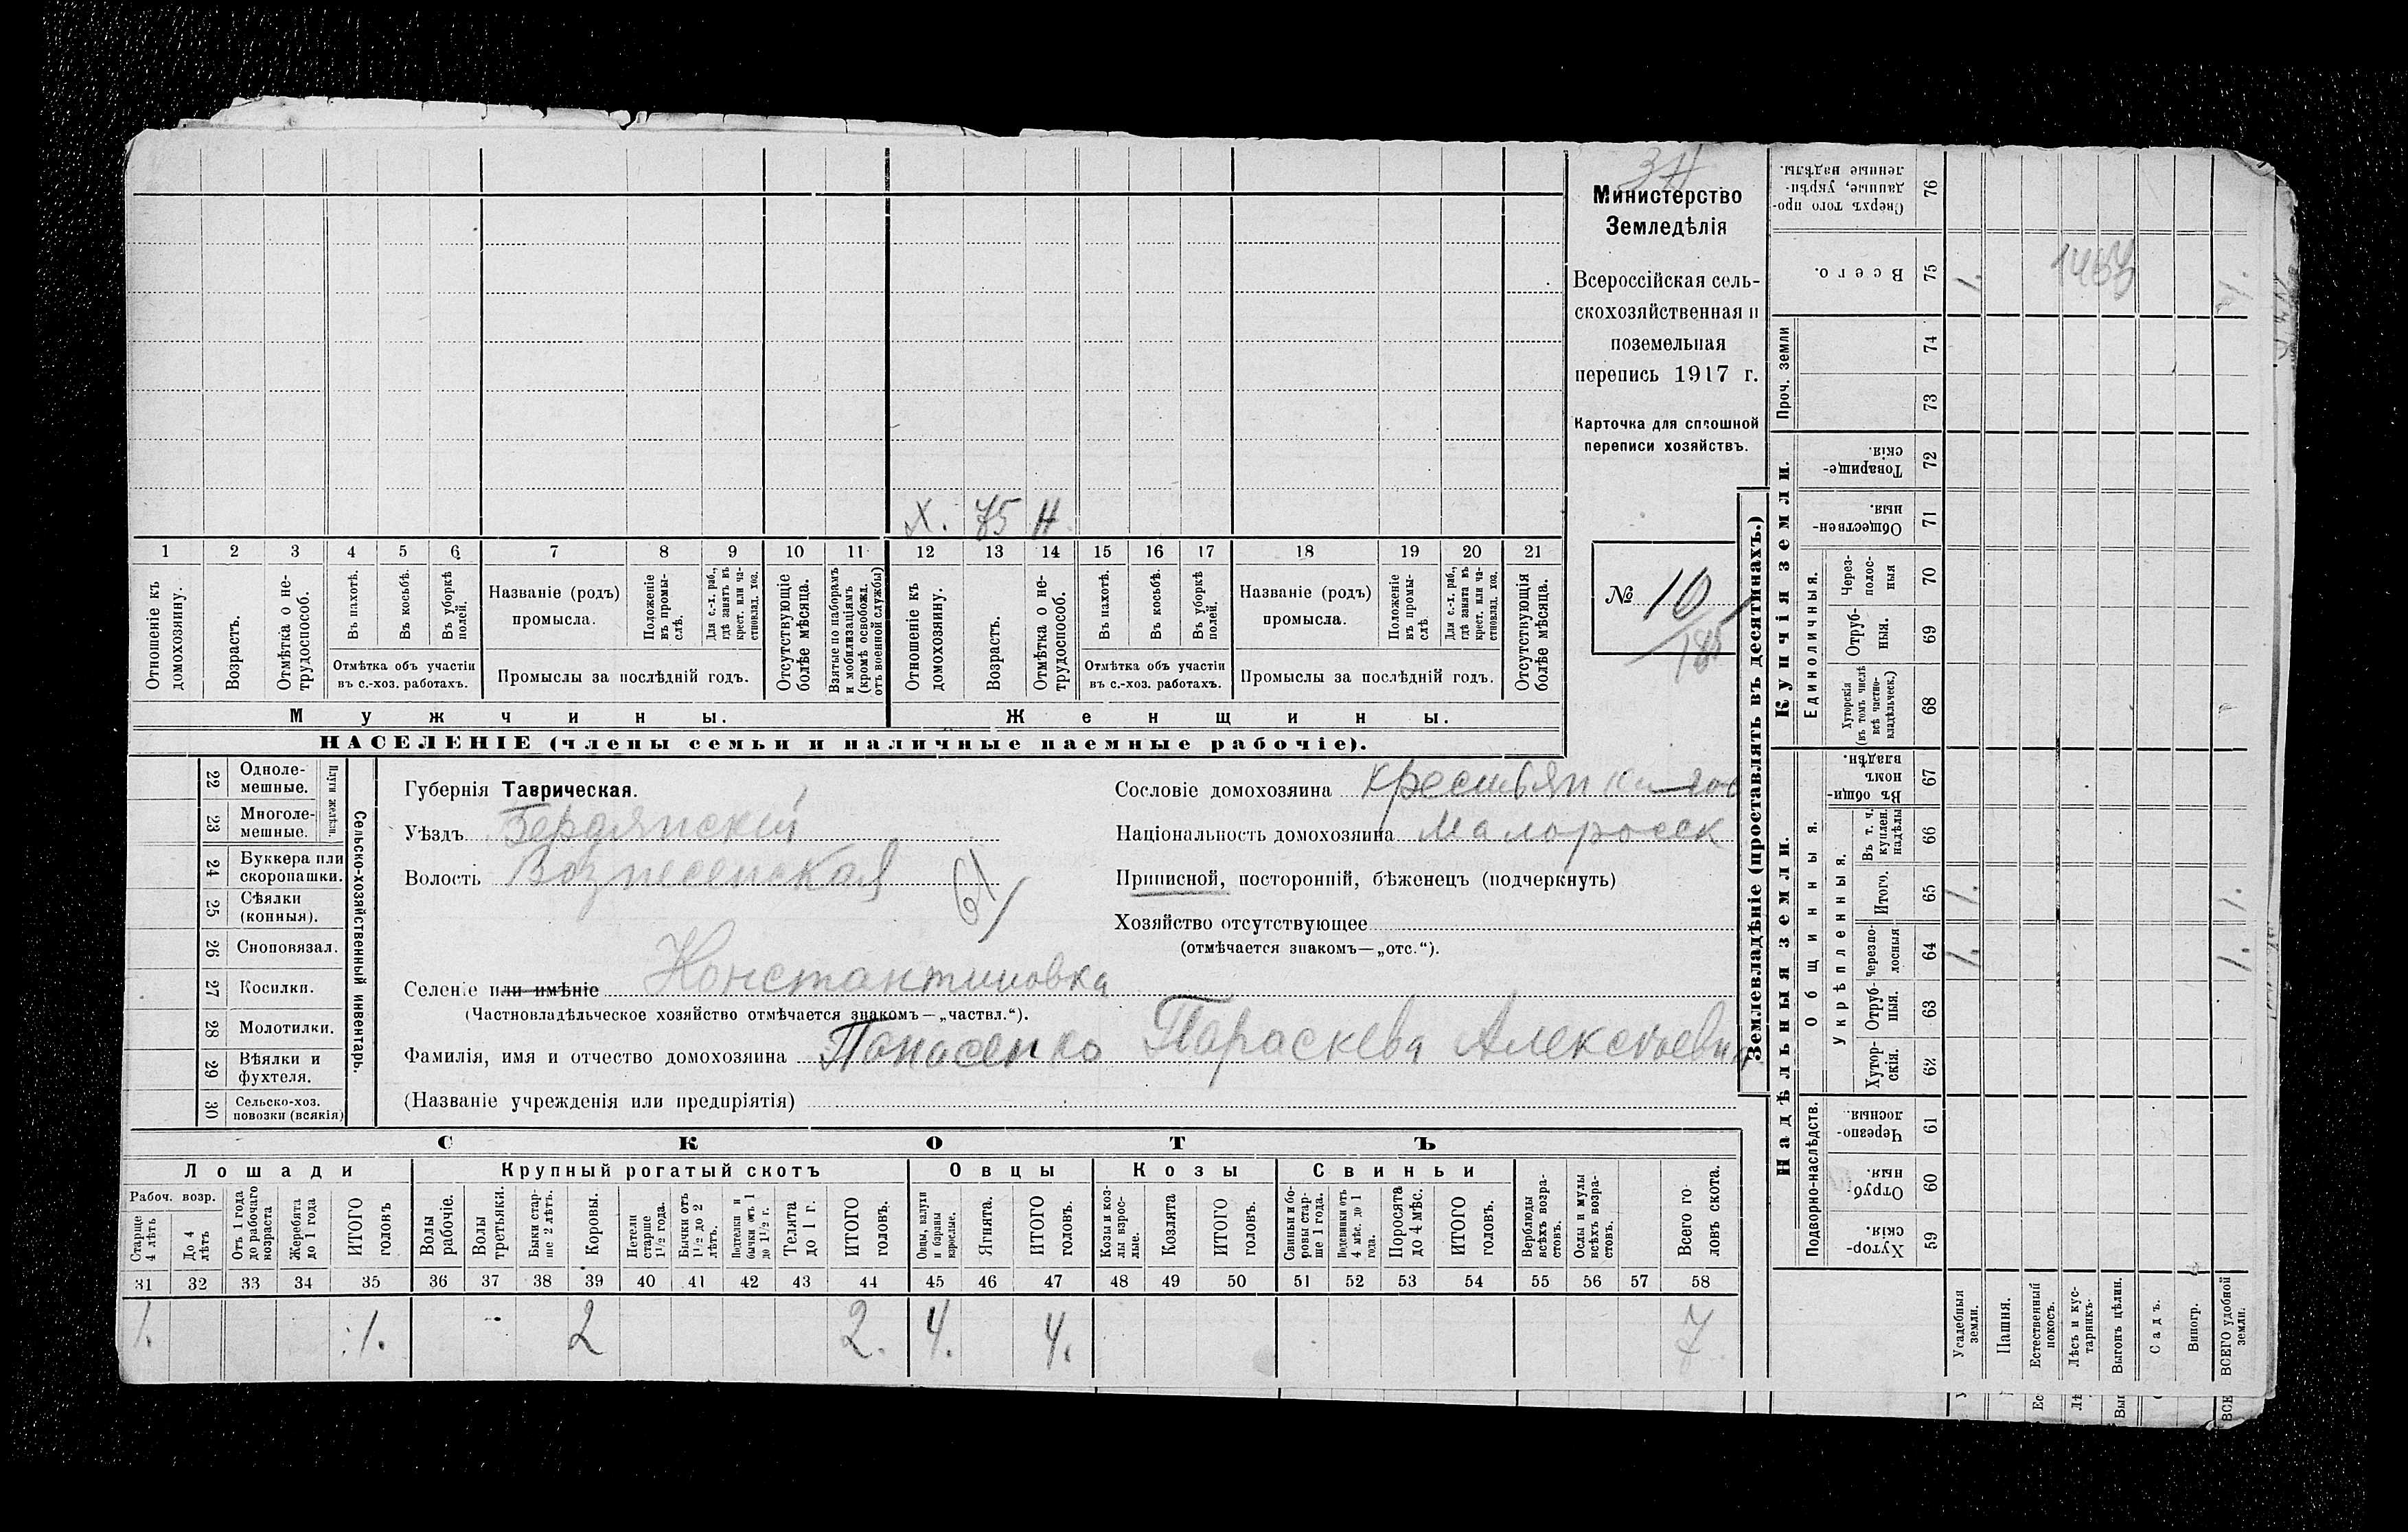 Министерство
Земледѣлія
Всероссійская сель-
скохозяйственная и
поземельная
перепись 1917 г.
Карточка для сплошной
переписи хозяйствъ.
№ 10
Х. 75 Н
1 2 3 4 5 6 7 8 9 10 11 12 13 14 15 16 17 18 19 20 21
Отношеніе къ домохозяину.
Возрастъ.
Отмѣтка о не-трудоспособ.
Въ пахотѣ.
Въ косьбѣ.
Въ уборкѣ полей.
Отмѣтка объ участіи
въ с.-хоз. работахъ.
Названіе (родъ)
промысла.
Положеніе въ промы-слѣ.
Для с.-х. раб., гдѣ занятъ въ крест. или ча-стновлад. хоз.
Промыслы за послѣдній годъ.
Отсутствующіе болѣе мѣсяца.
Взятые по наборамъ и мобилизаціямъ (кромѣ освобожд. отъ военной службы)
Отношеніе къ домохозяину.
Возрастъ.
Отмѣтка о не-трудоспособ.
Въ пахотѣ.
Въ косьбѣ.
Въ уборкѣ полей.
Отмѣтка объ участіи
въ с.-хоз. работахъ.
Названіе (родъ)
промысла.
Положеніе въ промы-слѣ.
Для с.-х. раб., гдѣ занята въ крест. или ча-стновлад. хоз.
Промыслы за послѣдній годъ.
Отсутствующія болѣе мѣсяца.
Мужчины.
Женщины.
НАСЕЛЕНІЕ (члены семьи и наличные наемные рабочіе).
22 Одноле-мешные.
23 Многоле-мешные.
Плуги желѣзн.
24 Буккера или скоропашки.
25 Сѣялки (конныя).
26 Сноповязал.
27 Косилки.
28 Молотилки.
29 Вѣялки и фухтеля.
30 Сельско-хоз. повозки (всякія)
Сельско-хозяйственный инвентарь.
Губернія Таврическая.
Уѣздъ Бердянскій
Волость Вознесенская
61
Селеніе или имѣніе Константиновка
(Частновладѣльческое хозяйство отмѣчается знакомъ—„частвл.“).
Фамилія, имя и отчество домохозяина Панасенко Параскева Алексѣевна
(Названіе учрежденія или предпріятія)
Сословіе домохозяина крестьянка
Національность домохозяина Малоросск
Приписной, посторонній, бѣженецъ (подчеркнуть)
Хозяйство отсутствующее
(отмѣчается знакомъ—„отс.“).
СКОТЪ
Лошади
Крупный рогатый скотъ
Овцы
Козы
Свиньи
Рабоч. возр.
Старше 4 лѣтъ
До 4 лѣтъ
Отъ 1 года до рабочаго возраста
Жеребята до 1 года
ИТОГО головъ
Волы рабочіе.
Волы третьяки.
Быки стар-ше 2 лѣтъ.
Коровы.
Нетели старше 1½ года.
Бычки отъ 1½ до 2 лѣтъ.
Подтелки и бычки отъ 1 до 1½ г.
Телята до 1 г.
ИТОГО головъ.
Овцы, валухи и бараны взрослые.
Ягнята.
ИТОГО головъ.
Козы и коз-лы взрос-лые.
Козлята
ИТОГО головъ.
Свиньи и бо-ровы стар-ше 1 года.
Подсвинки отъ 4 мѣс. до 1 года.
Поросята до 4 мѣс.
ИТОГО головъ.
Верблюды всѣхъ возра-стовъ.
Ослы и мулы всѣхъ возра-стовъ.
Всего го-ловъ скота.
31 32 33 34 35 36 37 38 39 40 41 42 43 44 45 46 47 48 49 50 51 52 53 54 55 56 57 58
1. 1. 2 2. 4. 4. 7
Землевладѣніе (проставлять въ десятинахъ.)
Надѣльныя земли.
Купчія земли.
Проч. земли
Подворно-наслѣдств.
Общинныя.
Укрѣпленныя.
Единоличныя.
Сверхъ того про-данные, укрѣп-ленные надѣлы. 76
Всего. 75
74
73
Товарище-скія. 72
Обществен-ныя. 71
Через-полос-ныя 70
Отруб-ныя. 69
Хуторскія (въ томъ числѣ всѣ частно-владѣльческ.) 68
Въ общин-номъ владѣн. 67
Въ т. ч. куплен. надѣлы 66
Итого. 65
Черезпо-лосныя 64
Отруб-ныя. 63
Хутор-скія. 62
Черезпо-лосныя. 61
Отруб-ныя. 60
Хутор-скія. 59
Усадебныя земли.
Пашня.
Естественный покосъ.
Лѣсъ и кус-тарникъ.
Выгонъ цѣлин.
Садъ.
Виногр.
ВСЕГО удобной земли.
1.
1.
1.
1.
1.